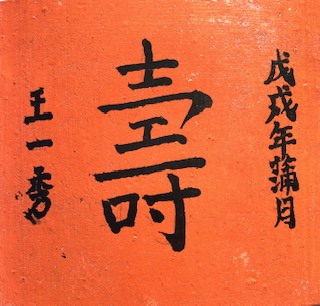 戊戌年蒲月
壽
王一秀